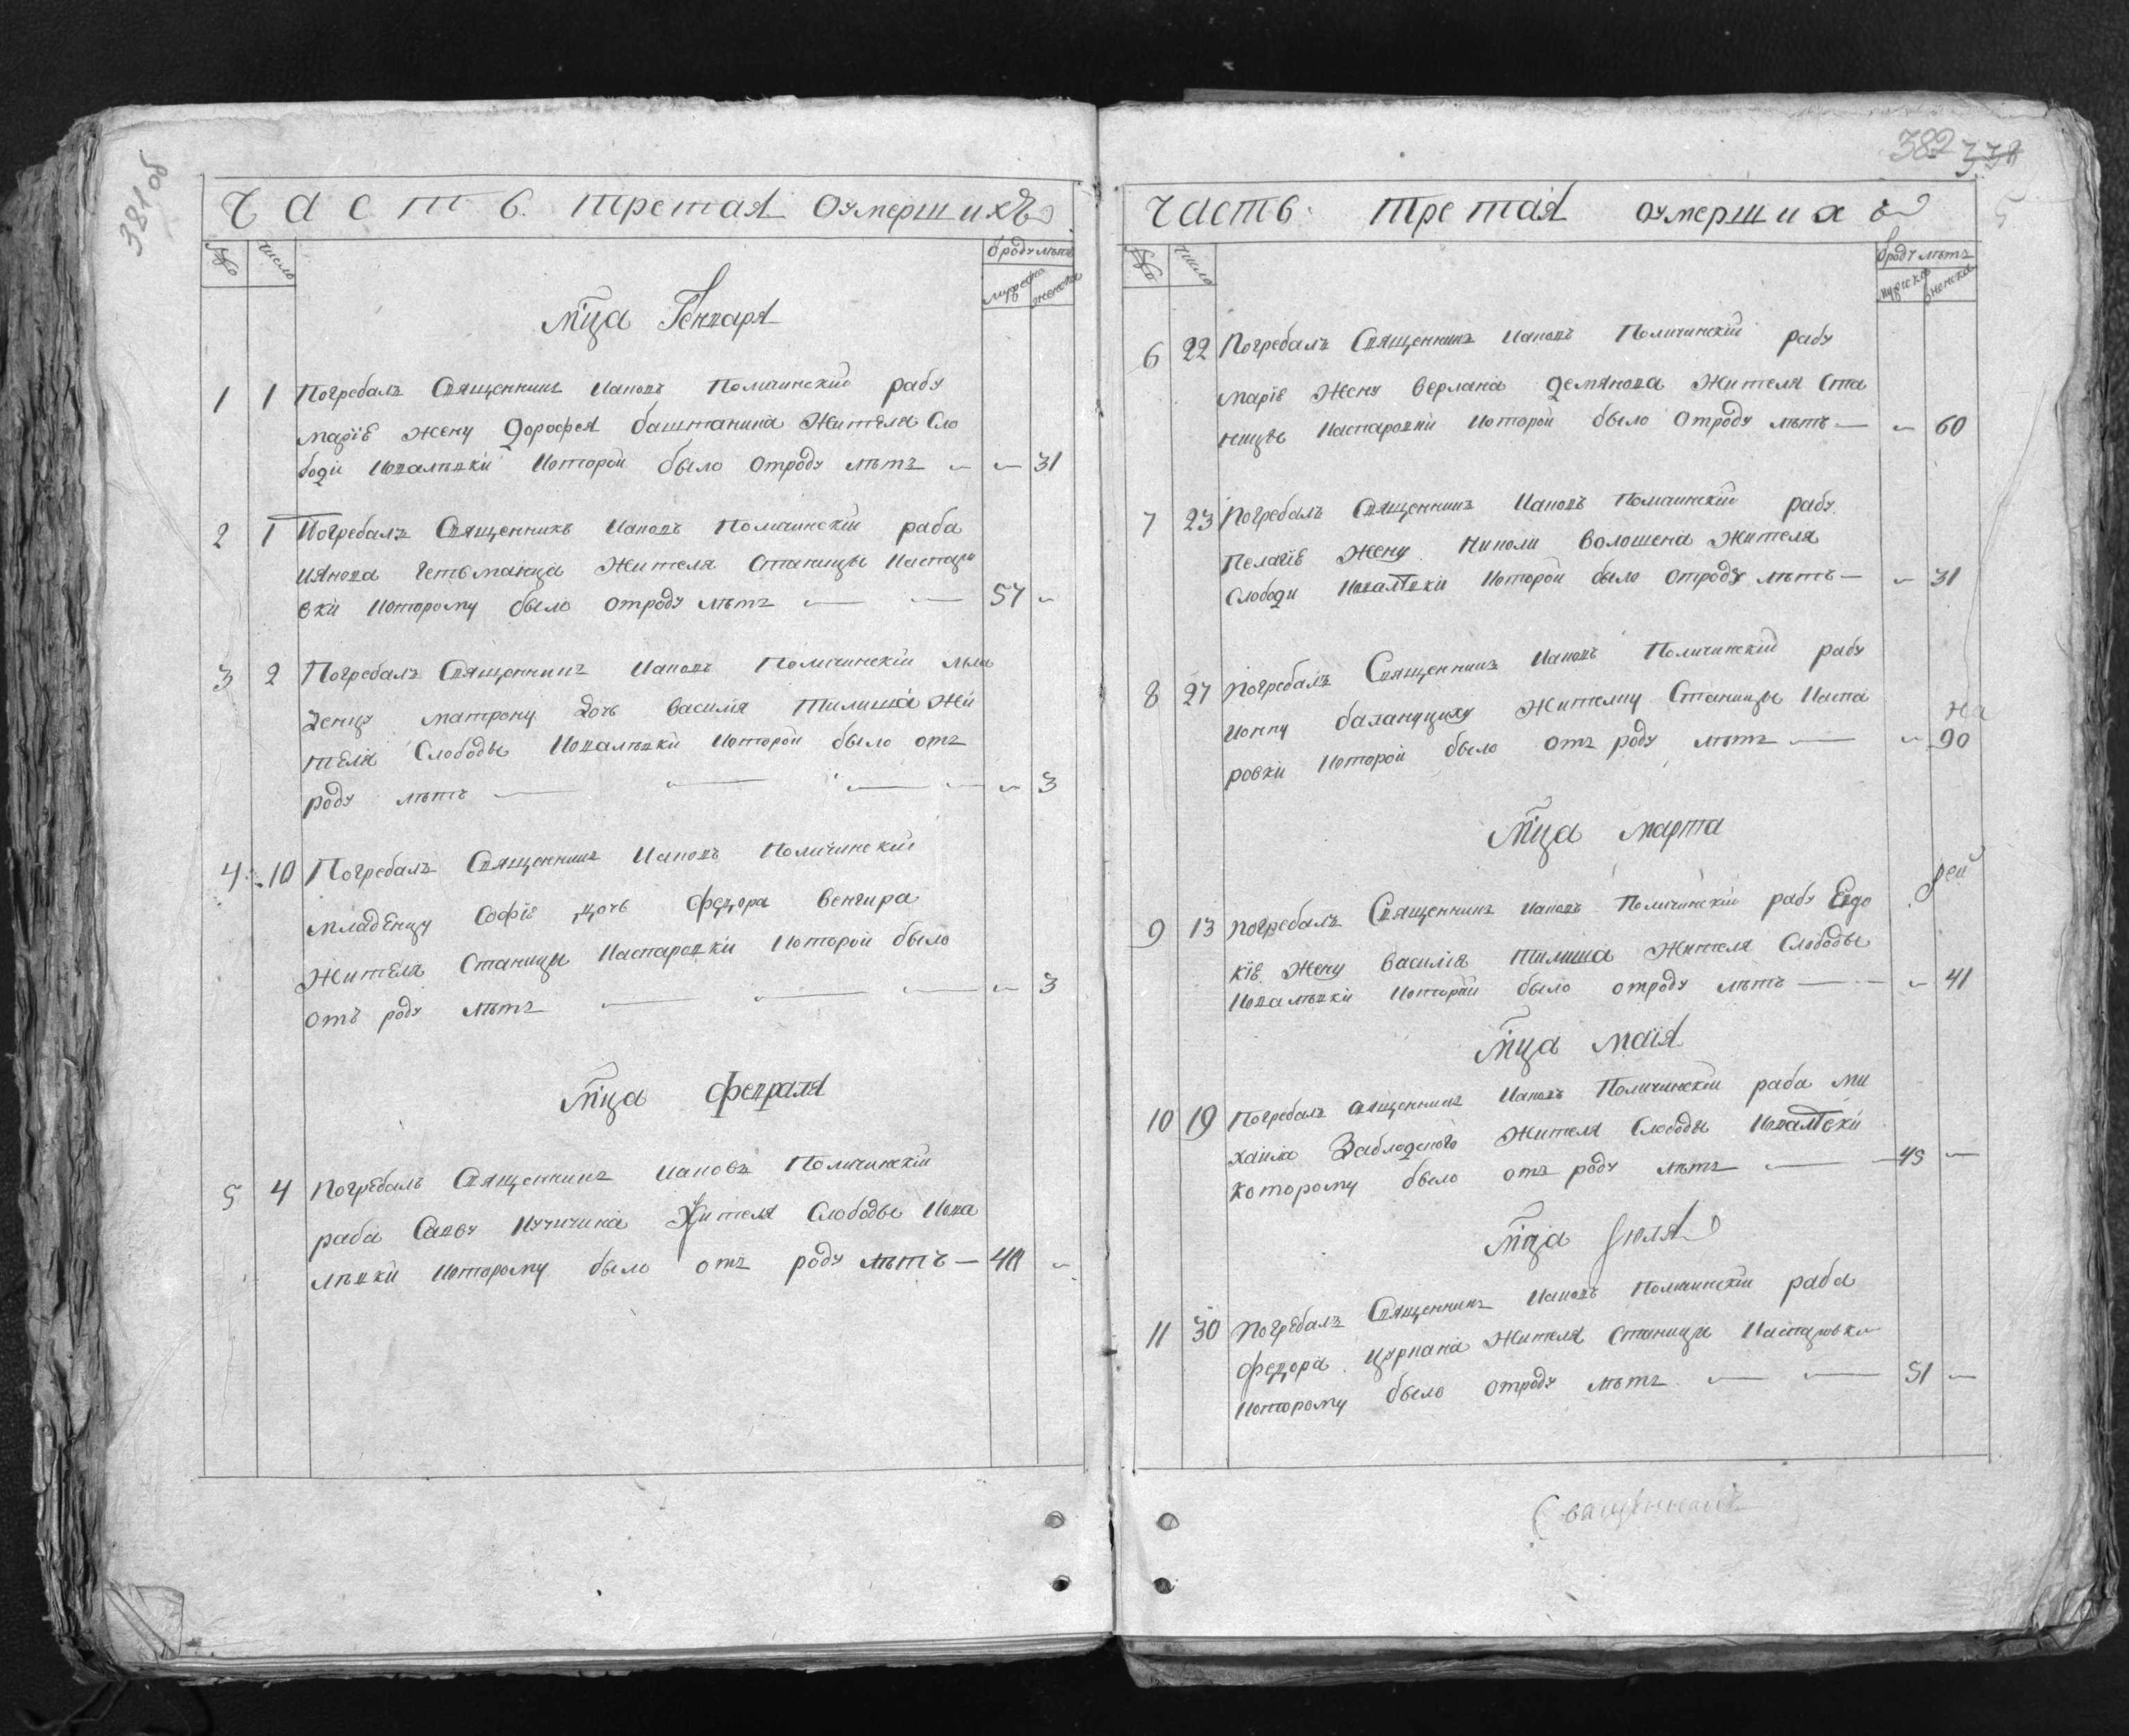 381 об
Часть третая оумершихъ
№ число
Ѿ роду лѣтъ
мужеска женска
Мца Генваря
1 1 Погребалъ Священникъ Иаковъ Полычинскій рабу
Марїю жену Дорофея баштанина Жителя Сло
боди Ковалѣвки которой было отроду лѣтъ — — 31
2 1 Погребалъ Священникъ Иаковъ Полычинскій раба
Иякова Гетьманца Жителя Станицы Каспаро
вки которому было отроду лѣтъ — — 57 —
3 2 Погребалъ Священникъ Иаковъ Полычинскій мла
денцу матрону дочь василїя Тилиша Жи
теля Слободы Ковалѣвки которой было отъ
роду лѣтъ — — — — — 3
4 10 Погребалъ Священникъ Иаковъ Полычинскій
младенцу Софїю дочь Федора венгира
Жителя Станицы Каспаровки которой было
отъ роду лѣтъ — — — — 3
Мца Февраля
5 4 Погребалъ Священникъ Иаковъ Полычинскій
раба Савву Кучичина Жителя Слободы Кова
лѣвки которому было отъ роду лѣтъ — —
382 338
Часть третая оумершихъ
№ число
Ѿ роду лѣтъ
мужеска женска
6 22 Погребалъ Священникъ Иаковъ Полычинскій рабу
Марїю Жену верлана демянова Жителя Ста
ницы Каспаровки которой было отроду лѣтъ — — 60
7 23 Погребалъ Священникъ Иаковъ Полычинскій рабу
Пелагїю Жену Николи волошена Жителя
Слободи Ковалѣвки которой было отроду лѣтъ — — 31
8 27 Погребалъ Священникъ Иаковъ Полычинскій рабу
Жителку Станицы Каспа
ровки которой было отъ роду лѣтъ — — 90
Мца марта
9 13 Погребалъ Священникъ Иаковъ Полычинскій рабу Евдо
кїю Жену василїя тилиша Жителя Слободы
Ковалѣвки которой было отроду лѣтъ — — 41
Мца маїя
10 19 Погребалъ священникъ Иаковъ Полычинскій раба ми
хаила Заблодского Жителя Слободы Ковалѣвки
которому было отъ роду лѣтъ — — 45 —
Мца Июля
11 30 Погребалъ Священникъ Иаковъ Полычинскій раба
Федора цуркана Жителя Станицы Каспаровки
которому было отроду лѣтъ — — 51 —